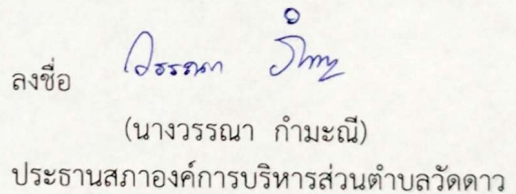 ลงชื่อ วรรณา
(นางวรรณา กำมะณี)
ประธานสภาองค์การบริหารส่วนตำบลวัดดาว